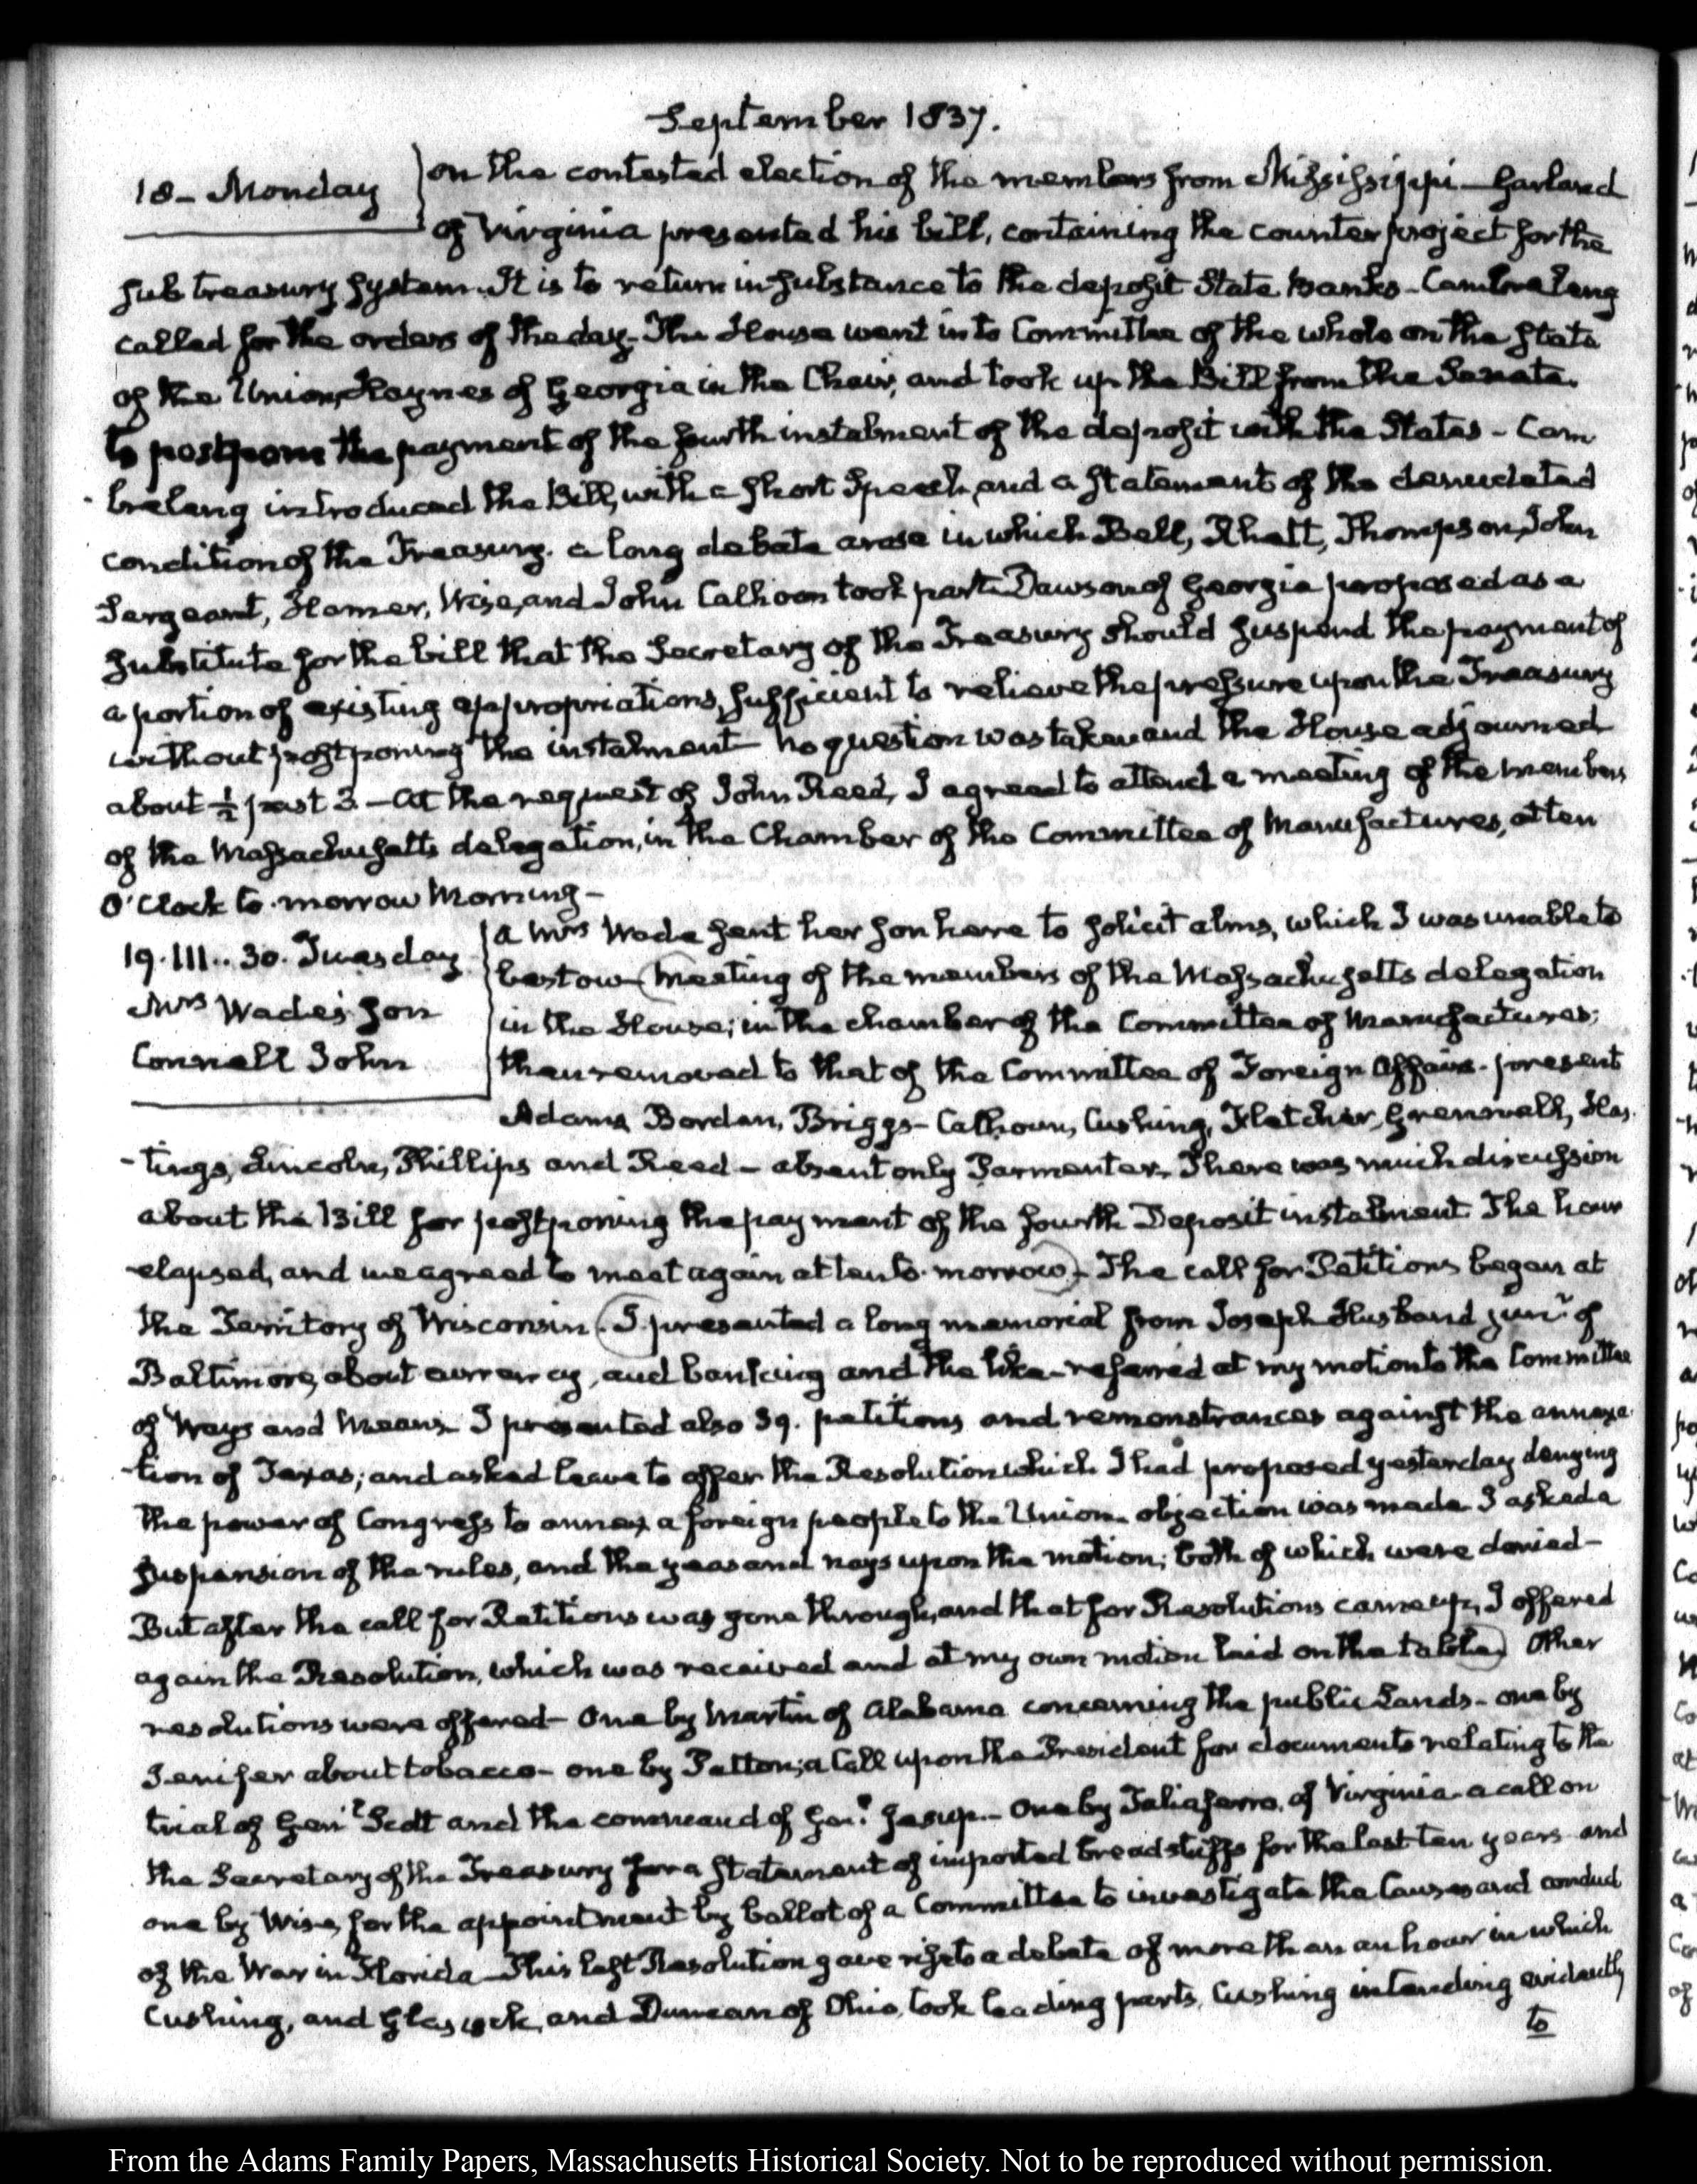 September 1837.
18 - Monday
on the contested election of the members from Mississippi - Garland
of Virginia presented his bill, containing the counter project for the
sub treasury system. It is to return in substance to the deposit State Banks - Cambreleng
called for the orders of the day - The House went into Committee of the whole on the state
of the Union, Haynes of Georgia in the Chair, and took up the Bill from the Senate.
to postpone the payment of the fourth instalment of the deposit with the States - Cam
breleng introduced the Bill, with a short Speech, and a statement of the denudated
condition of the Treasury. a long debate arose in which Bell, Rhett, Thompson, John
Sergeant, Hamer, Wise, and John Calhoon took part. Dawson of Georgia proposed as a
substitute for the bill that the Secretary of the Treasury should suspend the payment of
a portion of existing appropriations, sufficient to relieve the pressure upon the Treasury
without postponing the instalment - no question was taken and the House adjourned
about ½ past 3. - At the request of John Reed, I agreed to attend a meeting of the members
of the Massachusetts delegation, in the Chamber of the Committee of Manufactures, at ten
O'Clock to-morrow Morning -
19. III.. 30. Tuesday
Mrs Wade's Son
Connell John
a Mrs Wade sent her son here to solicit alms, which I was unable to
bestow - Meeting of the members of the Massachusetts delegation
in the House; in the chamber of the Committee of Manufactures;
then removed to that of the Committee of Foreign Affairs - present
Adams, Borden, Briggs - Calhoun, Cushing, Fletcher, Grennell, Has-
-tings, Lincoln, Phillips and Reed - absent only Parmenter. There was much discussion
about the Bill for postponing the payment of the fourth Deposit instalment The hour
elapsed, and we agreed to meet again at ten to-morrow - The call for Petitions began at
the Territory of Wisconsin. I presented a long memorial from Joseph Husband junr. of
Baltimore, about currency, and banking and the like - referred at my motion to the Committee
of Ways and Means. I presented also 39. petitions and remonstrances against the annexa-
-tion of Texas; and asked leave to offer the Resolution which I had proposed yesterday denying
the power of Congress to annex a foreign people to the Union - objection was made I asked a
suspension of the rules, and the yeas and nays upon the motion; both of which were denied -
But after the call for Petitions was gone through, and that for Resolutions came up, I offered
again the Resolution, which was received and at my own motion laid on the table. Other
resolutions were offered - One by Martin of Alabama concerning the public Lands - one by
Jenifer about tobacco - one by Patton; a Call upon the President for documents relating to the
trial of Genl. Scott and the command of Genl. Jesup. - One by Taliaferro, of Virginia - a call on
the Secretary of the Treasury for a statement of imported bread stuffs for the last ten years - and
one by Wise, for the appointment by ballot of a Committee to investigate the Causes and conduct
of the War in Florida - This last Resolution gave rise to a debate of more than an hour in which
Cushing, and Glascock, and Duncan of Ohio, took leading parts, Cushing intending evidently
to
From the Adams Family Papers, Massachusetts Historical Society. Not to be reproduced without permission.